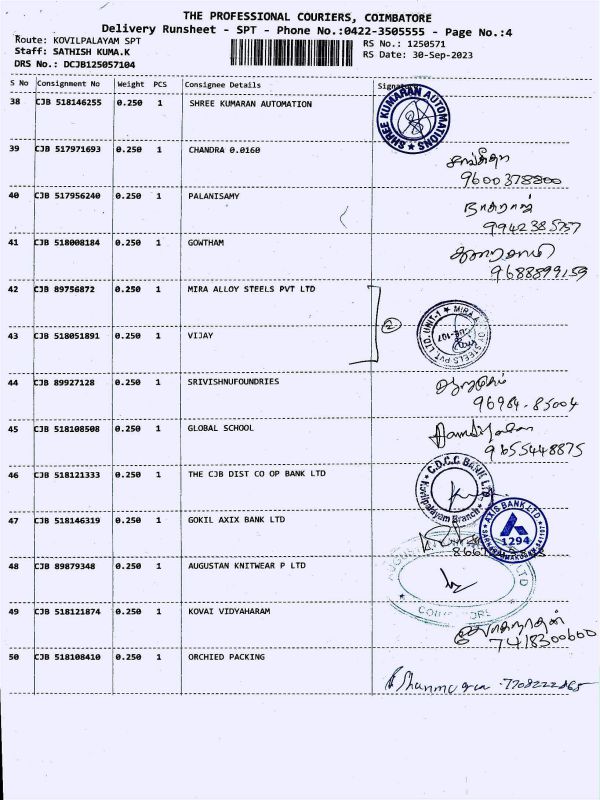 THE PROFESSIONAL COURIERS, COIMBATORE
Delivery Runsheet - SPT - Phone No.:0422-3505555 - Page No.:4
Route: KOVILPALAYAM SPT
RS No.: 1250571
Staff: SATHISH KUMA.K
RS Date: 30-Sep-2023
DRS No.: DCJB125057104
S No Consignment No Weight PCS Consignee Details
38 CJB 518146255 0.250 1 SHREE KUMARAN AUTOMATION
SHREE KUMARAN AUTOMATIONS
39 CJB 517971693 0.250 1 CHANDRA 0.0160
9600378800
40 CJB 517956240 0.250 1 PALANISAMY
நாகராஜ்
9942385757
41 CJB 518008184 0.250 1 GOWTHAM
9688899159
42 CJB 89756872 0.250 1 MIRA ALLOY STEELS PVT LTD
2
MIRA ALLOY STEELS PVT LTD. UNIT-1
43 CJB 518051891 0.250 1 VIJAY
44 CJB 89927128 0.250 1 SRIVISHNUFOUNDRIES
96984-85004
45 CJB 518108508 0.250 1 GLOBAL SCHOOL
9655448875
46 CJB 518121333 0.250 1 THE CJB DIST CO OP BANK LTD
C.D.C.C BANK LTD.
Kovilpalayam Branch
47 CJB 518146319 0.250 1 GOKIL AXIX BANK LTD
AXIS BANK LTD
1294
48 CJB 89879348 0.250 1 AUGUSTAN KNITWEAR P LTD
49 CJB 518121874 0.250 1 KOVAI VIDYAHARAM
7418300600
50 CJB 518108410 0.250 1 ORCHIED PACKING
7708222865